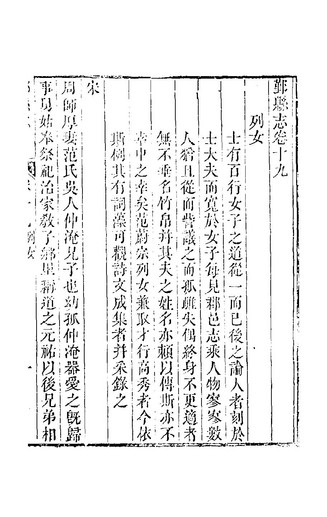 鄞縣志卷十九
列女
士有百行女子之道從一而已後之論人者刻於
士大夫而寬於女子每見郡邑志乘人物寥寥數
人猶且從而訾議之而孤嫠失偶終身不更適者
無不垂名竹帛并其夫之姓名亦賴以傳斯亦不
幸中之幸矣范蔚宗列女兼取才行高秀者今依
斯例其有詞藻可觀詩文成集者并采錄之
宋
周師厚妻范氏吳人仲淹兄子也幼孤仲淹器愛之旣歸
事舅姑奉祭祀治家敎子鄉里稱道之元祐以後兄弟相